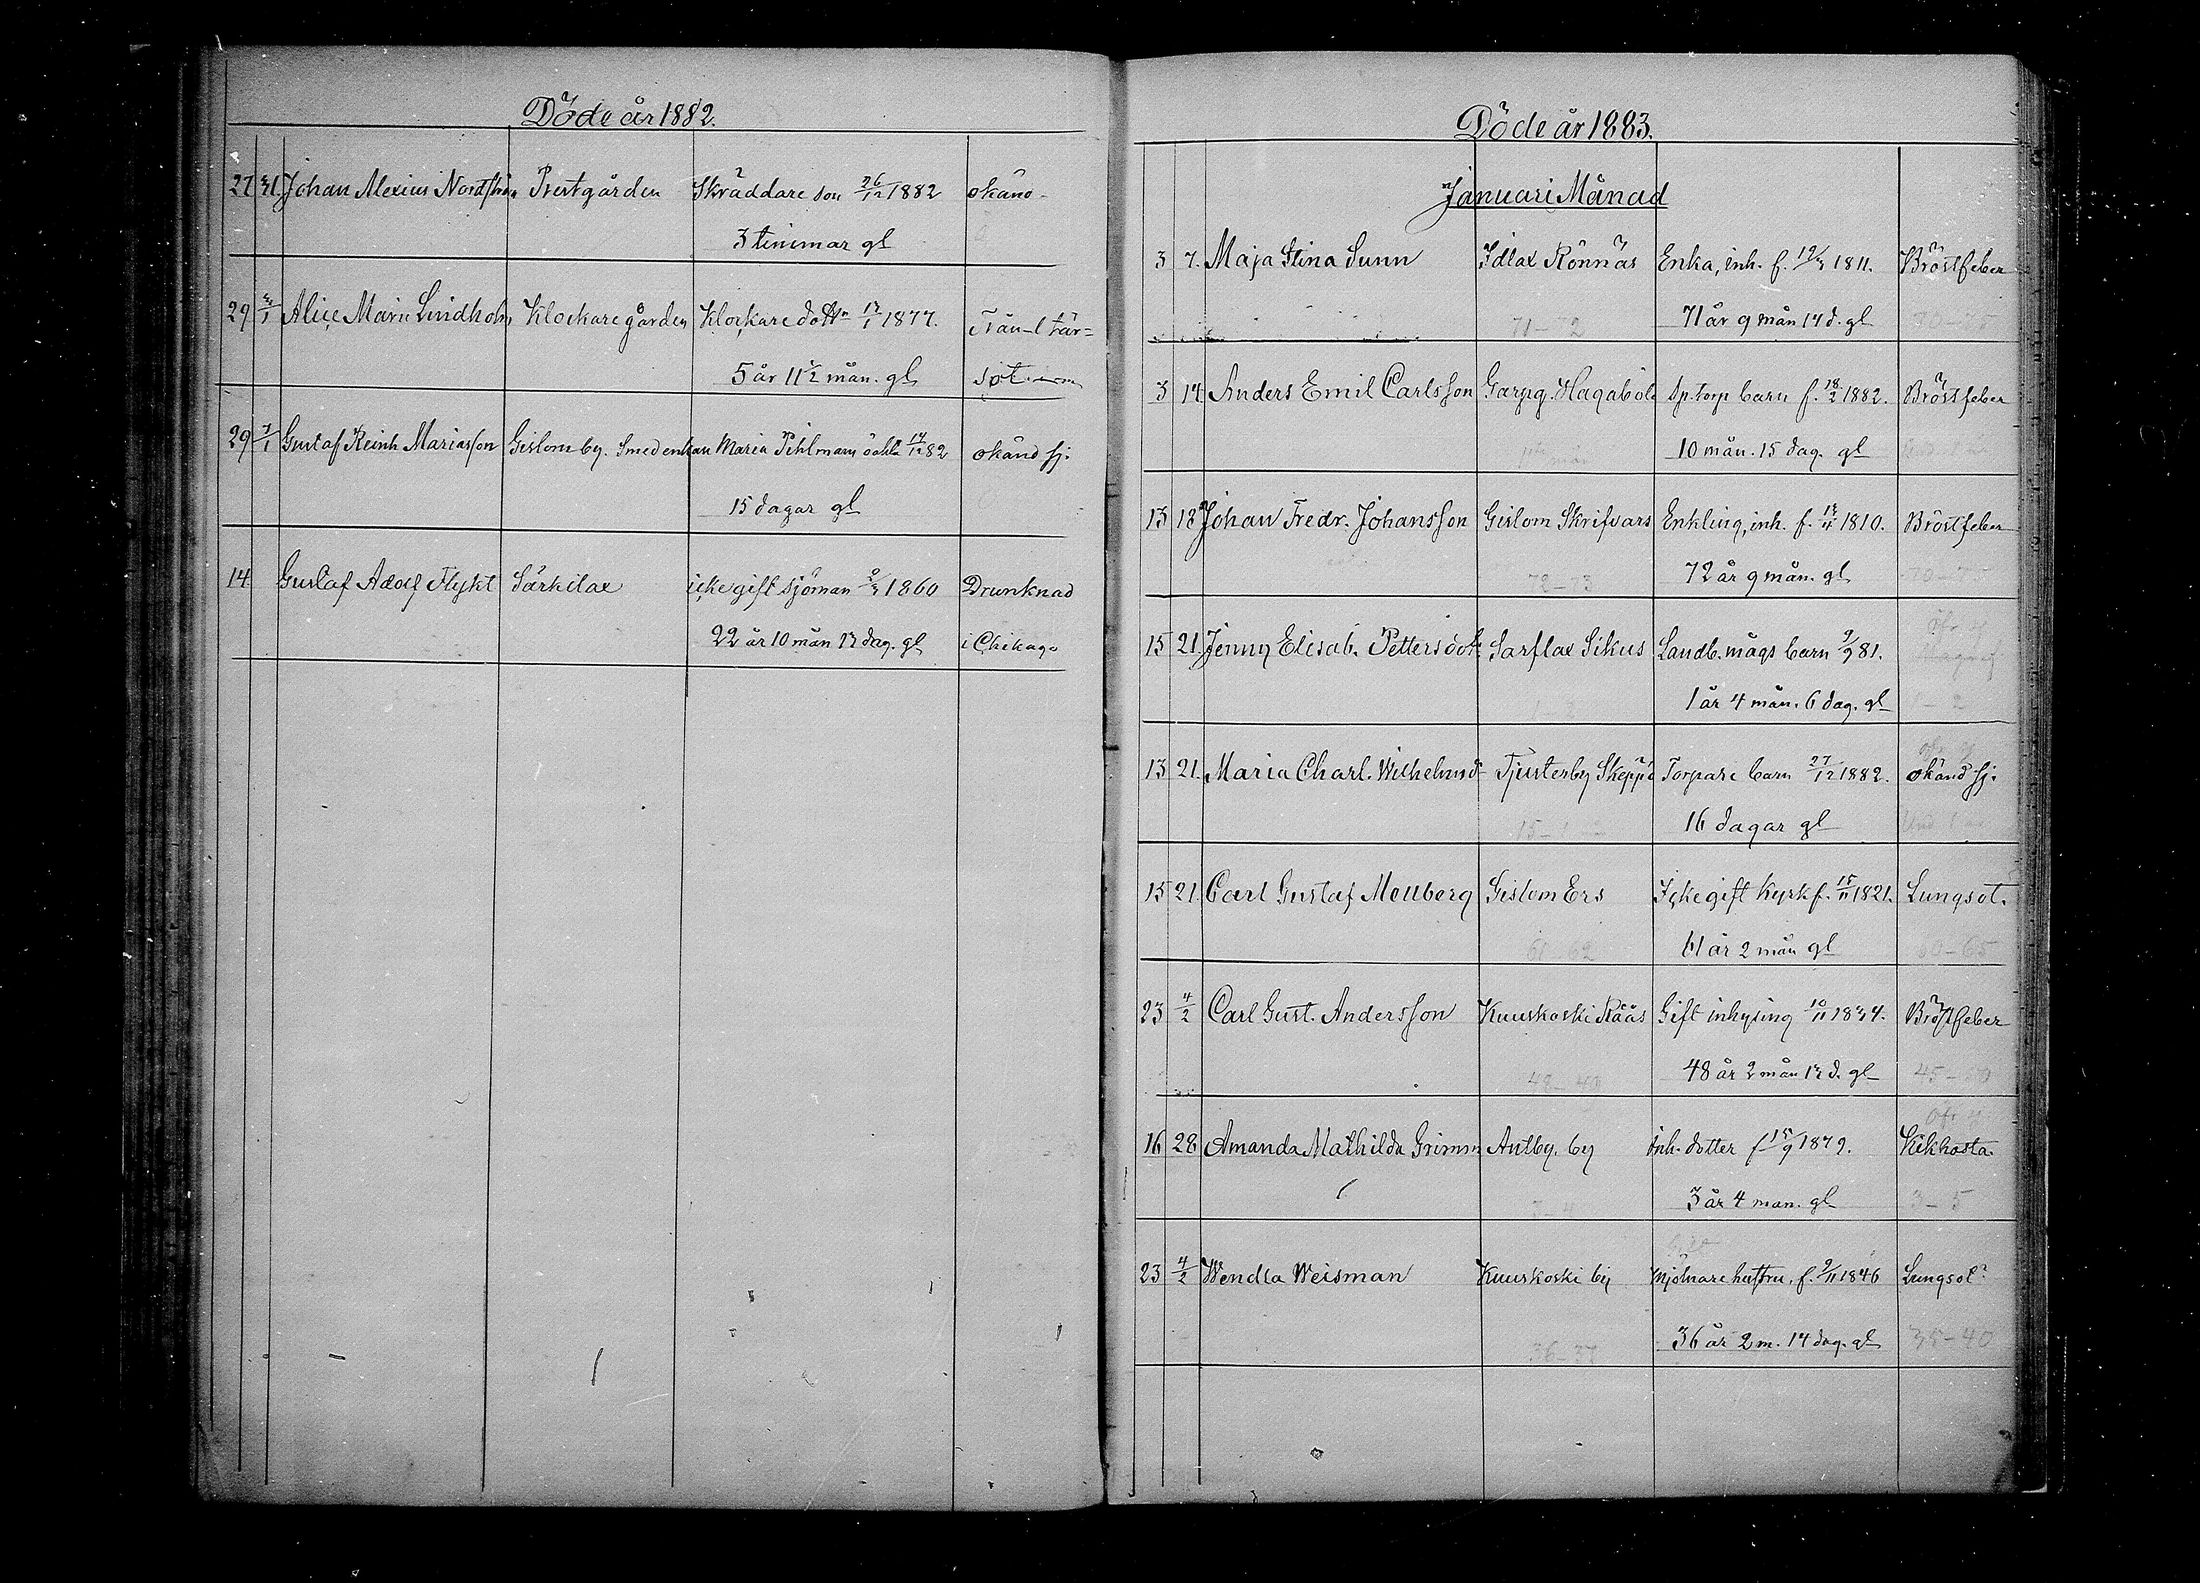 Döde år 1882.
27 31. Johan Alexius Nordström Prestgården Skräddare son 26/12 1882 okänd
3 timmar gl
29 Alice Maria Lindholm Klockare gården Klockare dottr 13/1 1877. Trån- l tär=
5 år 11 1/2 mån. gl sot
29 7/1 Gustaf Reinh. Mariasson Gislom by. Smedenkan Maria Pihlmans oäkta 14/12 82 okänd sj.
15 dagar gl
14 Gustaf Adolf Flykt Särkilax icke gift sjöman 1860 Drunknad
22 år 10 mån 12 dag. gl i Chikago
Döde år 1883.
Januari Månad
3 7. Maja Stina Sunn Idlax Rönnäs Enka, inh. f. 19/3 1811. Bröstfeber
71-72 71 år 9 mån 14 d. gl 70-75
3 14 Anders Emil Carlsson Garpg. Hagaböle Sp. torp barn f. 18/2 1882. Bröstfeber
10 mån. 15 dag. gl
13 18 Johan Fredr. Johansson Gislom Skrifvars Enkling, inh. f. 13/4 1810. Bröstfeber
72-73 72 år 9 mån. gl 70-75
15 21. Jenny Elisab. Pettersdott. Sarflax Sikus Landb. mågs barn 9/9 81.
1 år 4 mån. 6 dag. gl - 2
13 21. Maria Charl. Wilhelmsd Tjusterby Skeppö Torpare barn 27/12 1882. okänd sj.
15- 16 dagar gl Und 1
15 21. Carl Gustaf Mellberg Gislom Ers Icke gift Kyrkf. 15/11 1821. Lungsot.
61-62 61 år 2 mån gl 60-65
23 4/2 Carl Gust. Andersson Kuuskoski Rääs Gift inhysing 10/11 1834. Bröstfeber
48-49 48 år 2 mån 13 d. gl 45-50
16 28 Amanda Mathilda Grimm Antby. by Inh. dotter f 15/9 1879. Kikhosta.
3-4 3 år 4 man. gl 3-5
23 4/2 Wendla Weisman Kuuskoski by Mjölnare hustru. f. 9/11 1846 Lungsot
36-37 36 år 2 m. 14 dag. gl 35-40